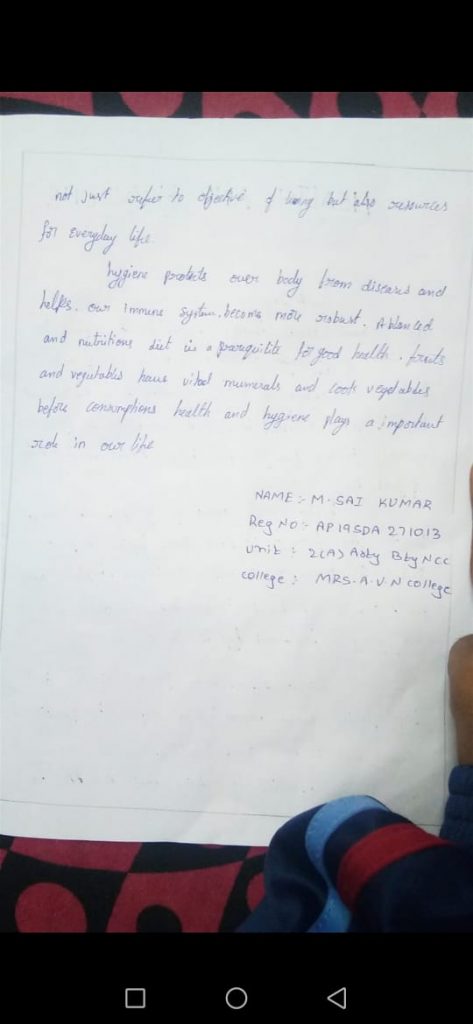 not just refer to objective of living but also resources
for everyday life.
hygiene protects over body from diseases and
helps. our immune system. become more robust. A blanced
and nutritions diet is a prerequilite for good health. fruits
and vegitables have vital munerals and cook vegetables
before consumptions health and hygiene plays a important
role in our life
NAME :- M. SAI KUMAR
Reg NO :- AP19SDA 271013
Unit : 2(A) Arty Bty NCC
college : MRS. A.V.N college